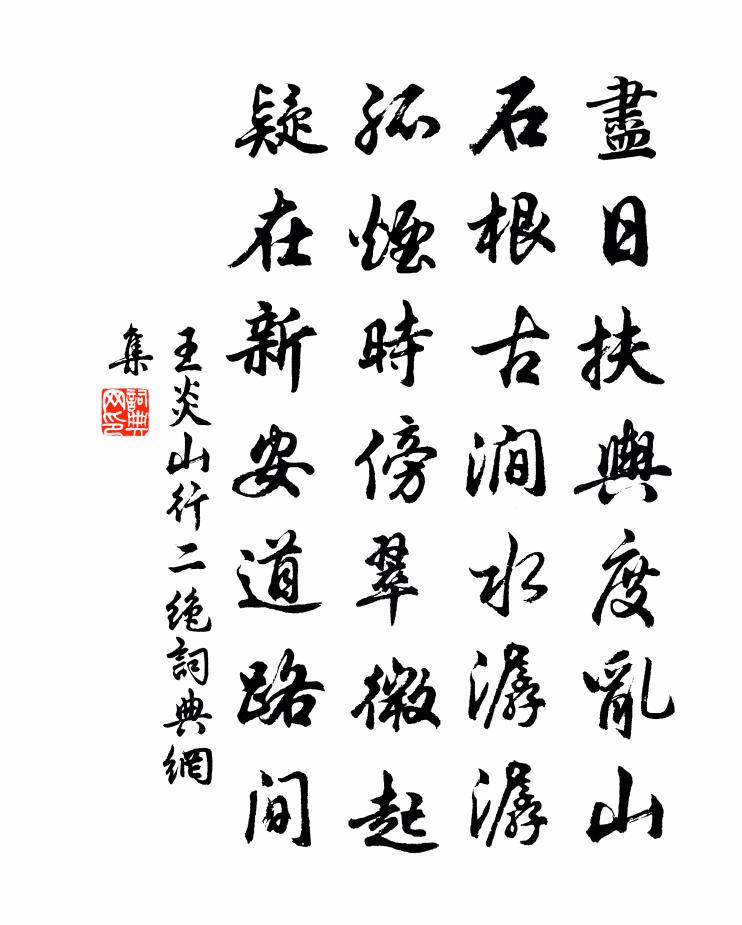 盡日扶輿度亂山
石根古澗水潺潺
孤煙時傍翠微起
疑在新安道路間
王炎山行二絶詞典網
集
詞典
网印